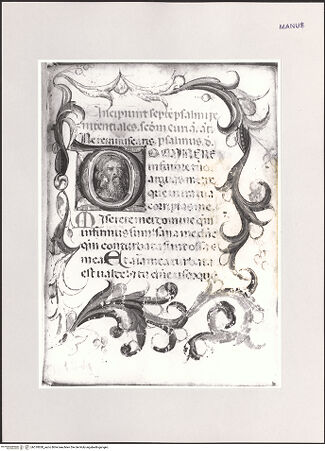 MANUS
Incipiunt septe psalmi pe
nitentiales. scdm curia. añ.
Ne reminiscaris. psalmus. d.
DOMINE NE
in furore tuo
arguas me ne
que in ira tua
corripias me.
Miserere mei domine qm
infirmus sum sana me dñe
qm conturbata sunt ossa
mea Et aīa mea turbata
est valde s; tu dñe usquequo